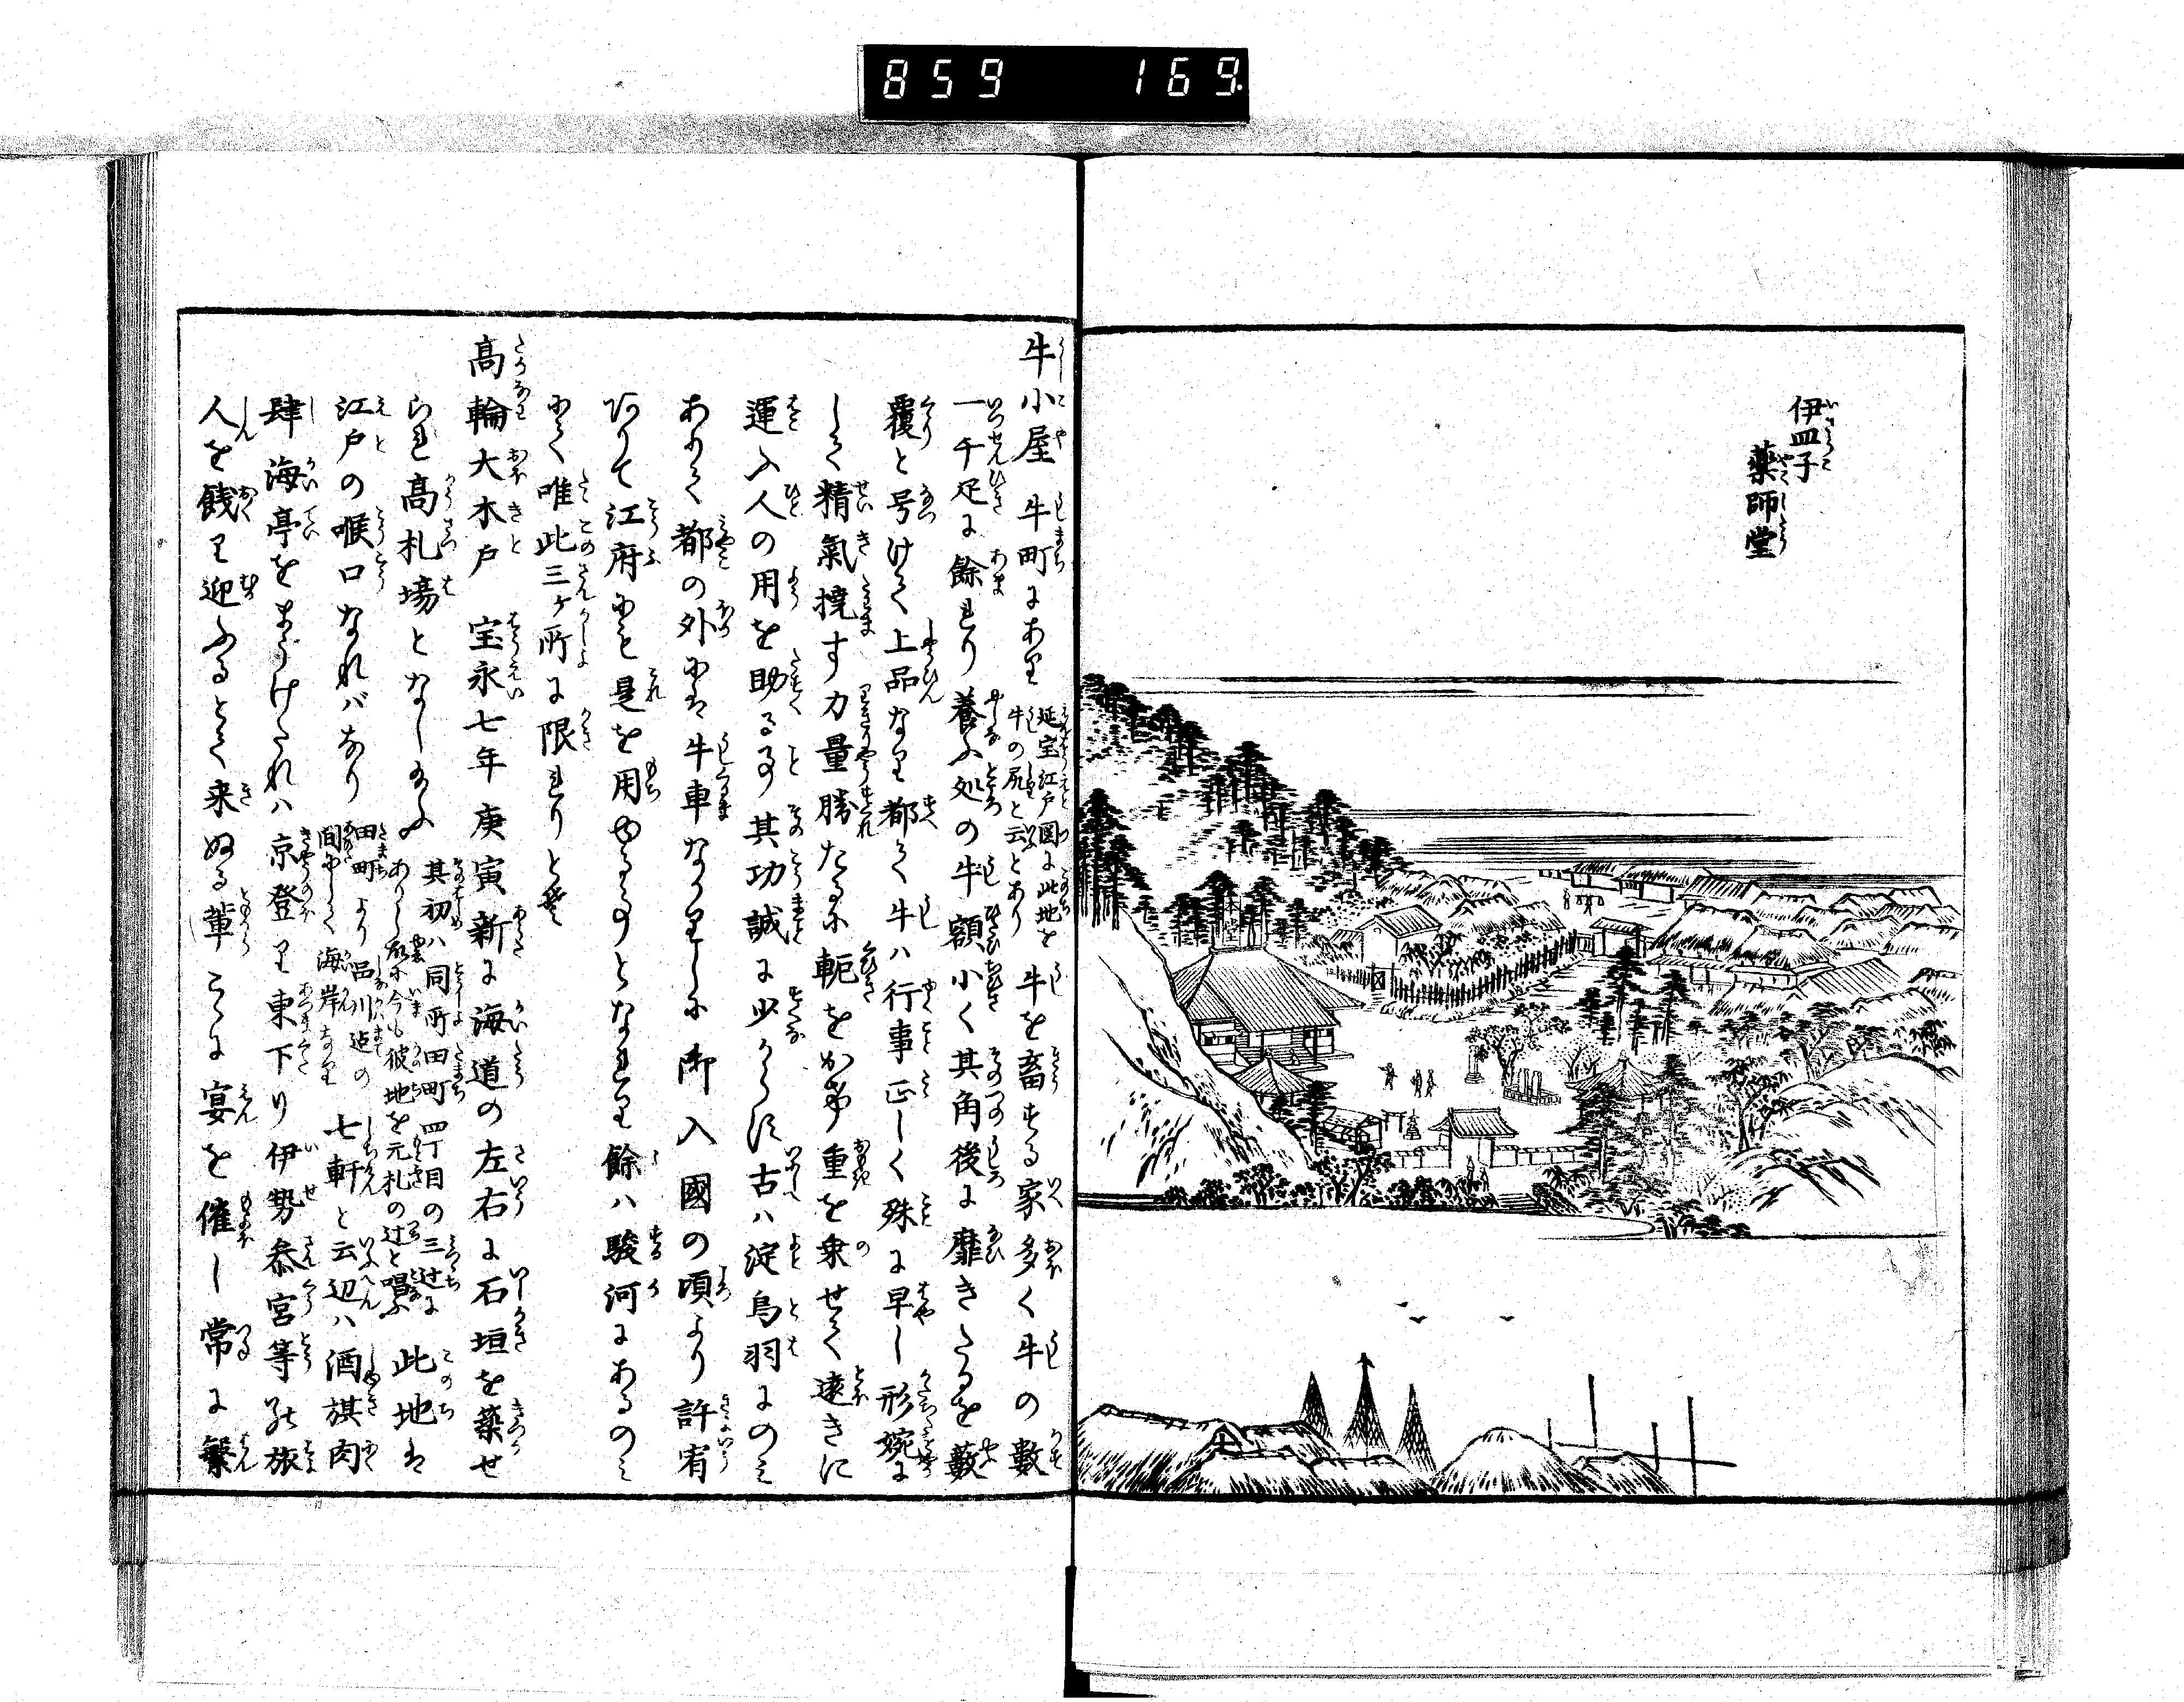 859 169
伊皿子
薬師堂
牛小屋 牛町にあり 延宝江戸図に此地を牛の尻と云とあり 牛を畜する家多く牛の數
一千疋に餘れり養ふ処の牛額小く其角後に靡きたるを藪
覆と号けて上品なり都て牛ハ行事正しく殊に早し形婉に
して精氣撓す力量勝たるに軛をかけ重を乗せて遠きに
運ひ人の用を助る事其功誠に少からす古ハ淀鳥羽にのミ
ありて都の外にハ牛車なかりしに御入國の頃より許宥
ありて江府にも是を用ゆる事となれり餘ハ駿河にあるのミ
にて唯此三ヶ所に限れりとぞ
高輪大木戸 宝永七年庚寅新に海道の左右に石垣を築せ
られ高札場となし給ふ 其初ハ同所田町四丁目の三辻にありし故に今も彼地を元札の辻と唱ふ 此地は
江戸の喉口なれバなり 田町より品川迄の間にして海岸なり 七軒と云辺ハ酒旗肉
肆海亭をまうけたれハ京登り東下り伊勢参宮等の旅
人を餞り迎ふるとて来ぬる輩こゝに宴を催し常に繁